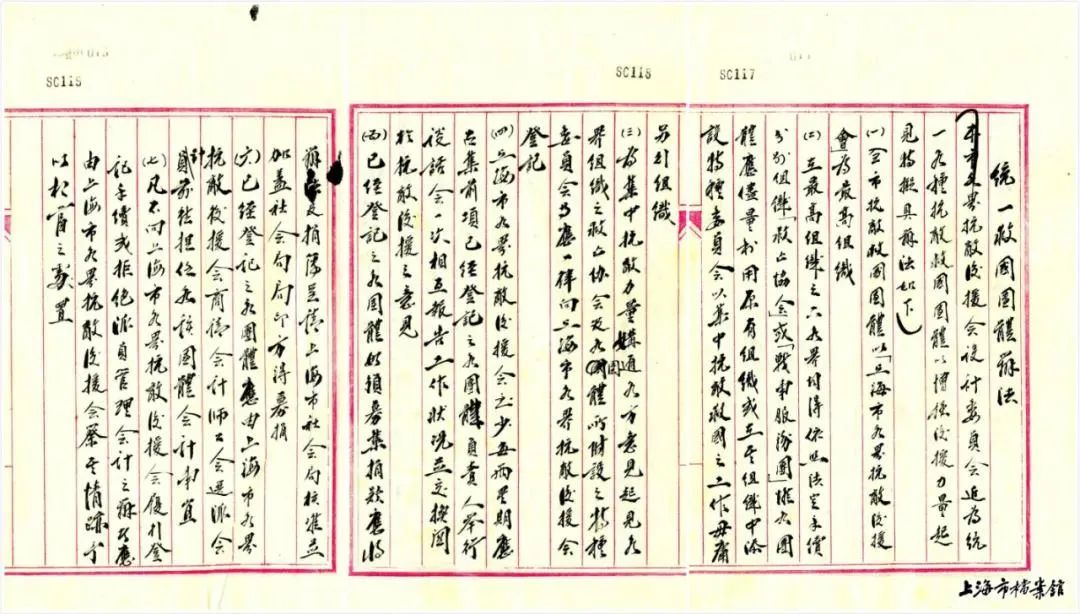 SC119
SC118
SC117
統一救國團體辦法
本市各界抗敵後援會設計委員會近為統
一各種抗敵救國團體以增強後援力量起
見特擬具辦法如下
(一)全市抗敵救國團體以「上海市各界抗敵後援
會」為最高組織
(二)在最高組織之下各界得依照法定手續
分別組織「救亡協會」或「戰時服務團」惟各團
體應儘量利用原有組織或在其組織中添
設特種委員會以集中抗敵救國之工作毋庸
另行組織
(三)為集中抗敵力量溝通各方意見起見各
界組織之救亡協會及各團體所附設之特種
委員會均應一律向上海市各界抗敵後援會
登記
(四)上海市各界抗敵後援會至少每兩星期應
召集前項已經登記之各團體負責人舉行
談話會一次相互報告工作狀況並交換關
於抗敵後援之意見
(五)已經登記之各團體如須募集捐款應將
辦法及捐簿呈請上海市社會局核准並
加蓋社會局局印方得募捐
(六)已經登記之各團體應由上海市各界
抗敵後援會商請會計師公會選派會
計員前往擔任各該團體會計事宜
(七)凡不向上海市各界抗敵後援會履行登
記手續或拒絕派員管理會計之團體應
由上海市各界抗敵後援會察其情跡予
以相當之處置
上海市檔案館